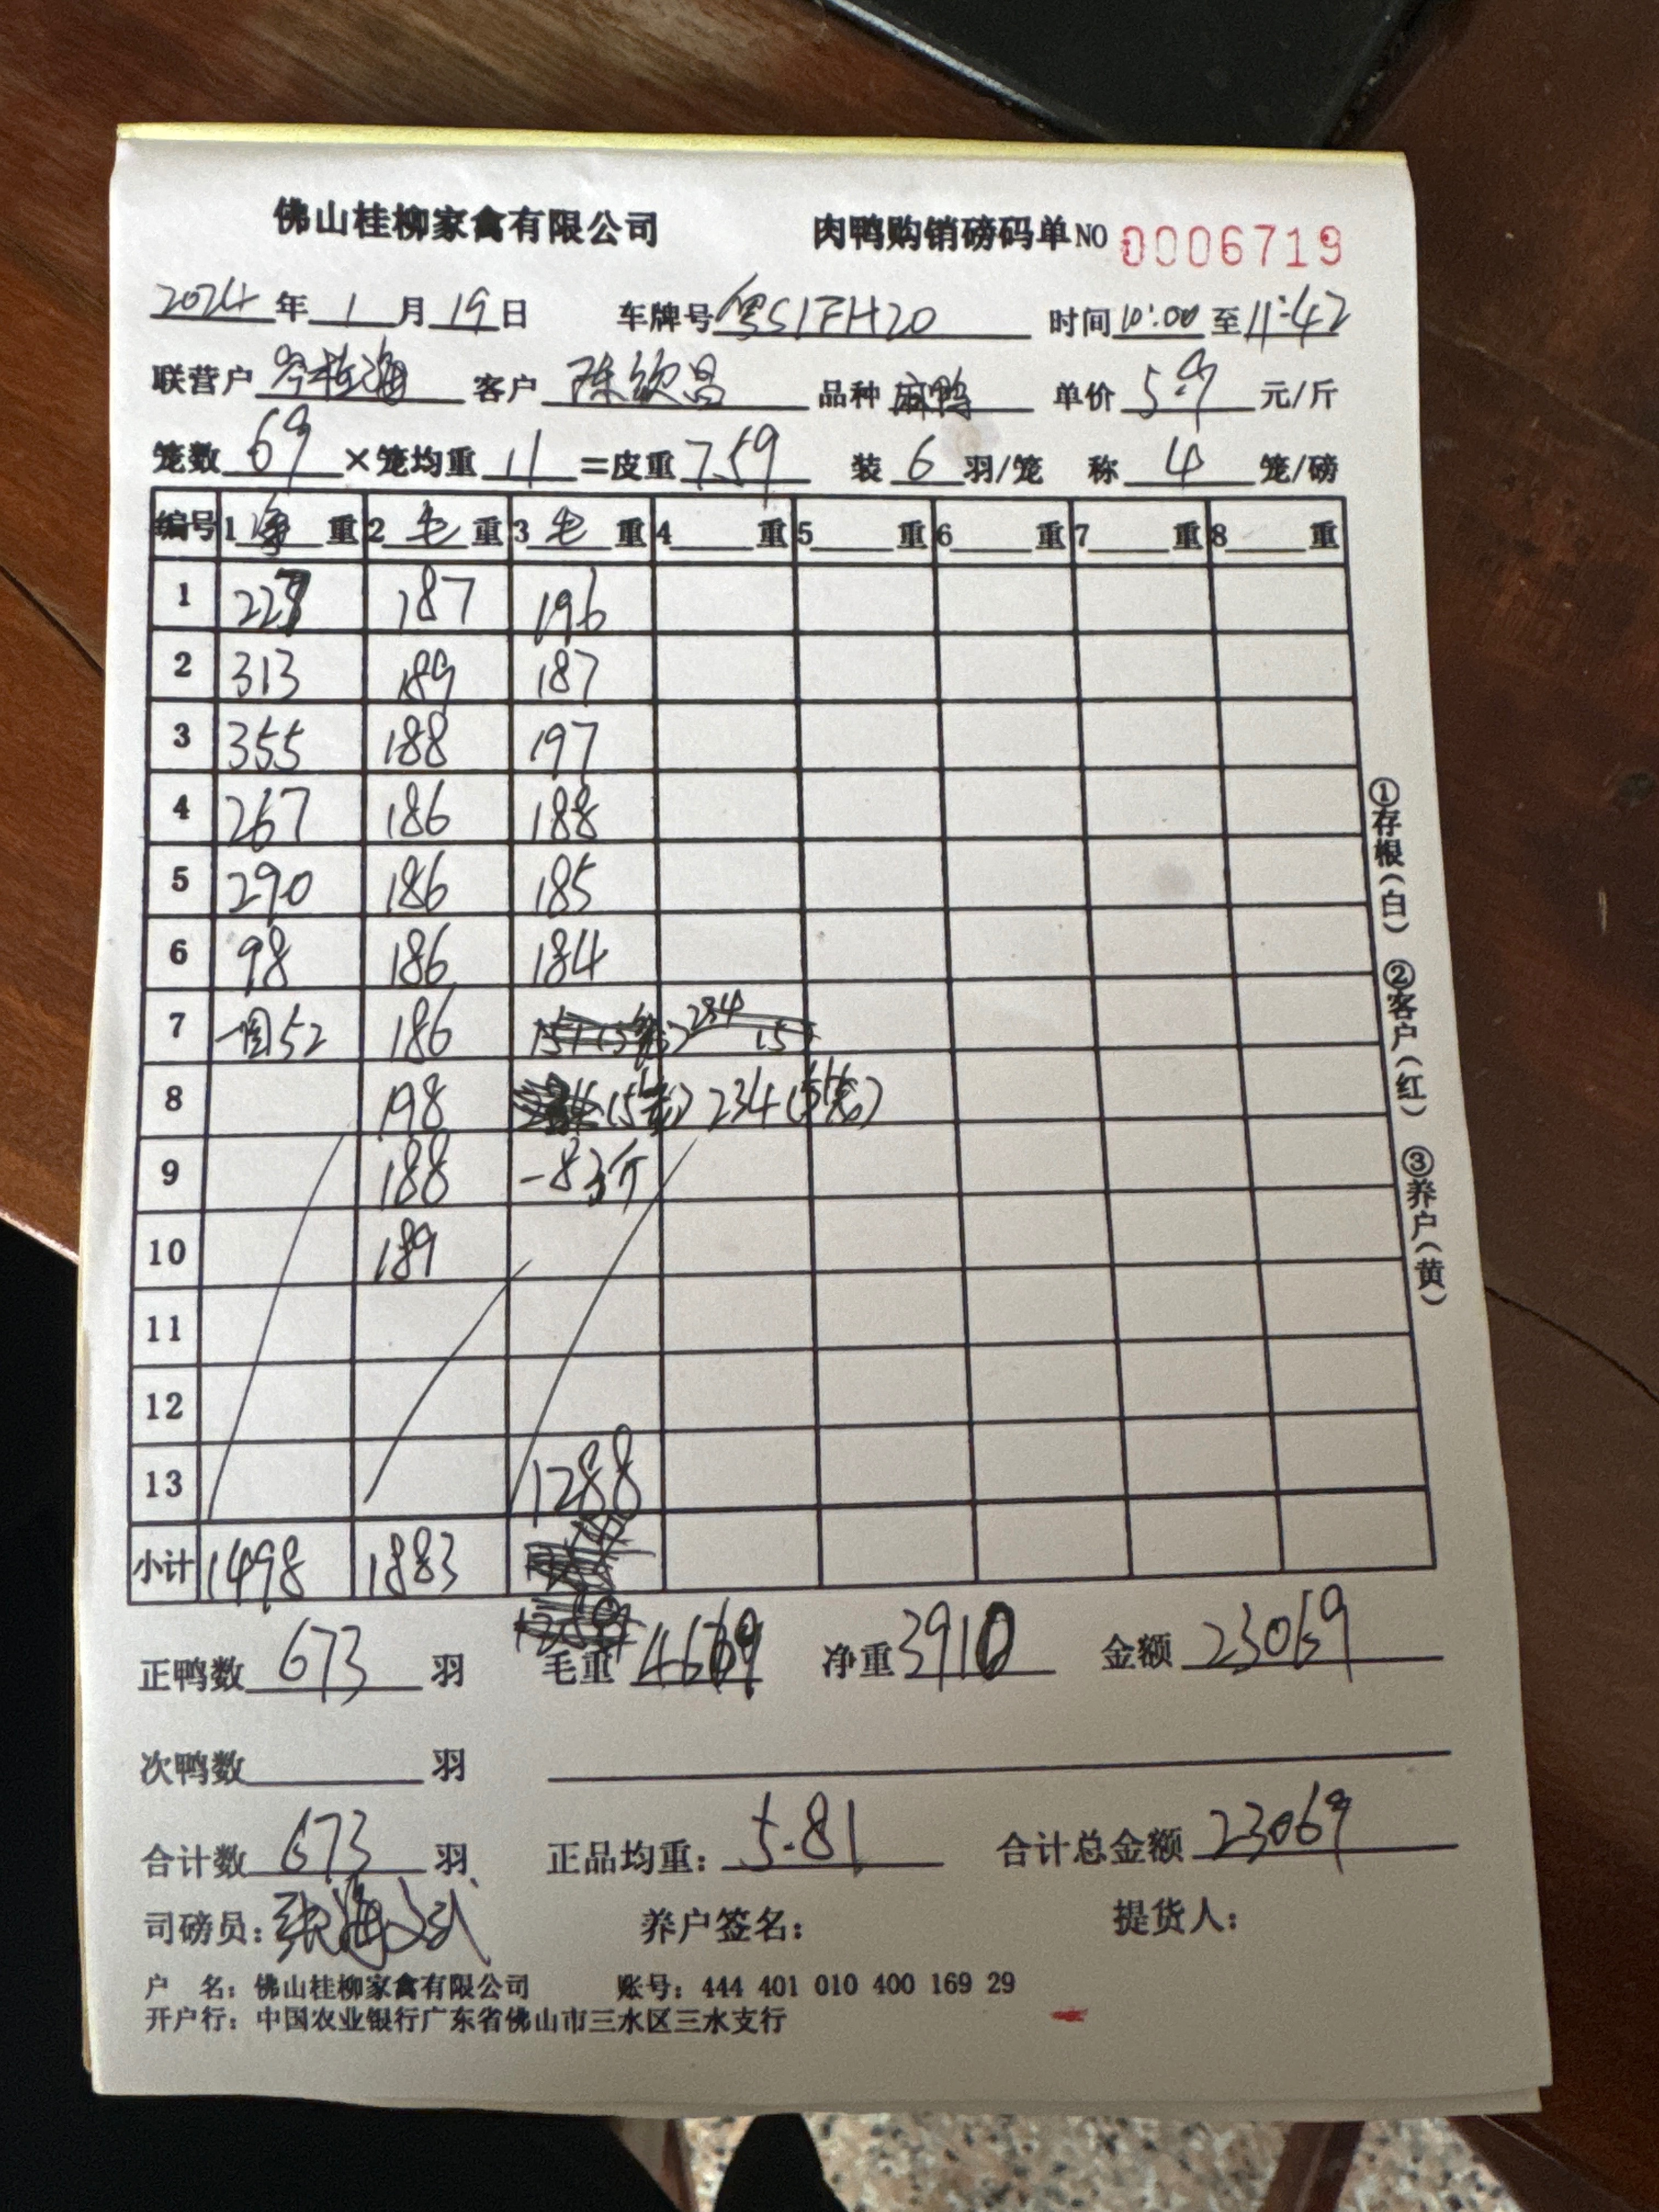 佛山桂柳家禽有限公司 肉鸭购销磅码单 NO 0006719
2024年 1 月 19 日 车牌号 粤S1FH20 时间 10:00 至 11:42
联营户 客户 陈钦昌 品种 麻鸭 单价 5.9 元/斤
笼数 69 ×笼均重 11 =皮重 759 装 6 羽/笼 称 4 笼/磅
编号 1 重 2 毛 重 3 毛 重 4 重 5 重 6 重 7 重 8 重
1 187 196
2 313 189 187
3 355 188 197
4 267 186 188
5 290 186 185
6 98 186 184
7 52 186
8 198 234
9 188 -83斤
10 189
11
12
13 1288
小计 1498 1883
正鸭数 673 羽 毛重 4669 净重 3910 金额 23069
次鸭数 羽
合计数 673 羽 正品均重: 5.81 合计总金额 23069
司磅员: 养户签名: 提货人:
户 名: 佛山桂柳家禽有限公司 账号: 444 401 010 400 169 29
开户行: 中国农业银行广东省佛山市三水区三水支行
①存根(白) ②客户(红) ③养户(黄)